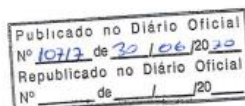 Publicado no Diário Oficial
Nº 10717 de 30 / 06 /20 20
Republicado no Diário Oficial
Nº ____ de ____/____/20____